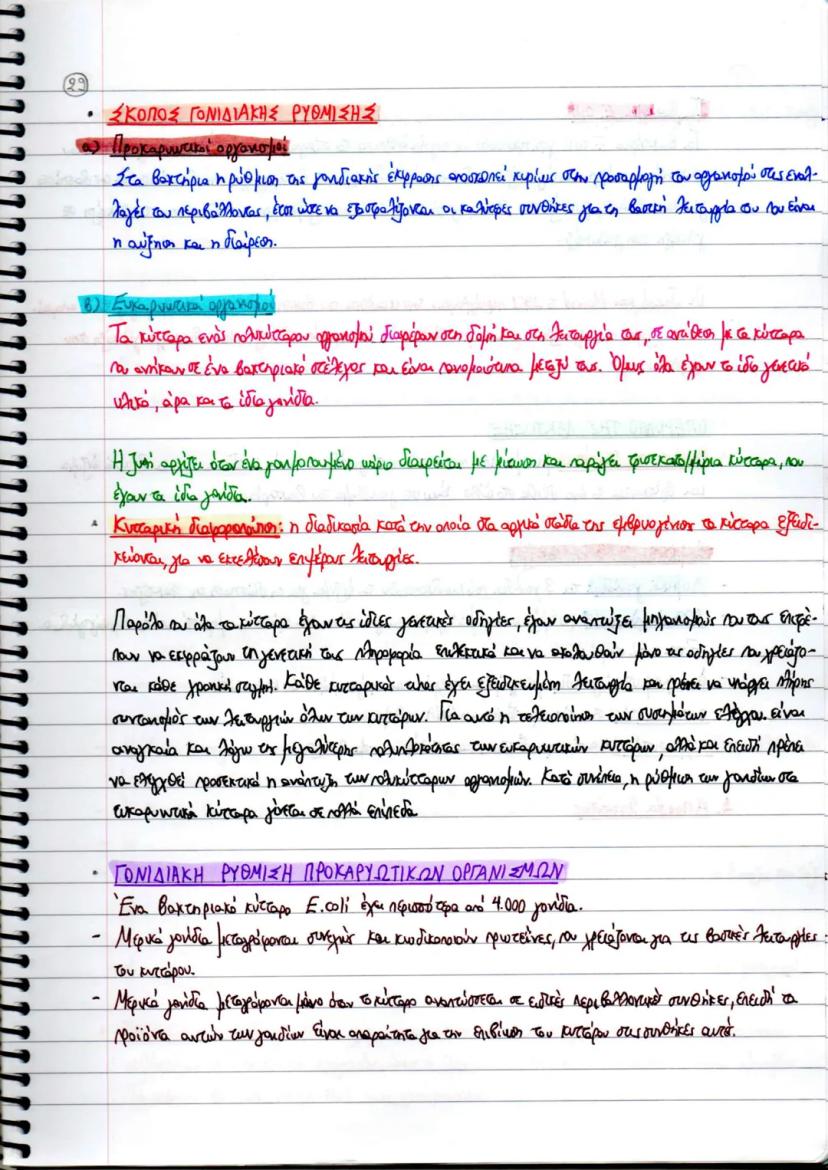 29
• ΣΚΟΠΟΣ ΓΟΝΙΔΙΑΚΗΣ ΡΥΘΜΙΣΗΣ
α) Προκαρυωτικοί οργανισμοί
Στα βακτήρια η ρύθμιση της γονιδιακής έκφρασης αποσκοπεί κυρίως στην προσαρμογή του οργανισμού στις εναλ-
λαγές του περιβάλλοντος, έτσι ώστε να εξασφαλίζονται οι καλύτερες συνθήκες για τη βασική λειτουργία του που είναι
η αύξηση και η διαίρεση.
β) Ευκαρυωτικοί οργανισμοί
Τα κύτταρα ενός πολυκύτταρου οργανισμού διαφέρουν στη δομή και στη λειτουργία τους, σε αντίθεση με τα κύτταρα
που ανήκουν σε ένα βακτηριακό στέλεχος και είναι πανομοιότυπα μεταξύ τους. Όμως όλα έχουν το ίδιο γενετικό
υλικό, άρα και τα ίδια γονίδια.
Η ζωή αρχίζει όταν ένα γονιμοποιημένο ωάριο διαιρείται με μίτωση και παράγει τρισεκατομμύρια κύτταρα, που
έχουν τα ίδια γονίδια.
• Κυτταρική διαφοροποίηση: η διαδικασία κατά την οποία στα αρχικά στάδια της εμβρυογένεσης τα κύτταρα εξειδι-
κεύονται, για να εκτελέσουν επιμέρους λειτουργίες.
Παρόλο που όλα τα κύτταρα έχουν τις ίδιες γενετικές οδηγίες, έχουν αναπτύξει μηχανισμούς που τους επιτρέ-
πουν να εκφράζουν τη γενετική τους πληροφορία επιλεκτικά και να ακολουθούν μόνο τις οδηγίες που χρειάζο-
νται κάθε χρονική στιγμή. Κάθε κυτταρικός τύπος έχει εξειδικευμένη λειτουργία και πρέπει να υπάρχει πλήρης
συντονισμός των λειτουργιών όλων των κυττάρων. Για αυτό η τελειοποίηση των συστημάτων ελέγχου είναι
αναγκαία και λόγω της μεγαλύτερης πολυπλοκότητας των ευκαρυωτικών κυττάρων, αλλά και επειδή πρέπει
να ελεγχθεί προσεκτικά η ανάπτυξη των πολυκύτταρων οργανισμών. Κατά συνέπεια, η ρύθμιση των γονιδίων στα
ευκαρυωτικά κύτταρα γίνεται σε πολλά επίπεδα
• ΓΟΝΙΔΙΑΚΗ ΡΥΘΜΙΣΗ ΠΡΟΚΑΡΥΩΤΙΚΩΝ ΟΡΓΑΝΙΣΜΩΝ
Ένα βακτηριακό κύτταρο E.coli έχει περισσότερα από 4.000 γονίδια.
- Μερικά γονίδια μεταγράφονται συνεχώς και κωδικοποιούν πρωτεΐνες, που χρειάζονται για τις βασικές λειτουργίες
του κυττάρου.
- Μερικά γονίδια μεταγράφονται μόνο όταν το κύτταρο αναπτύσσεται σε ειδικές περιβαλλοντικές συνθήκες, επειδή τα
προϊόντα αυτών των γονιδίων είναι απαραίτητα για την επιβίωση του κυττάρου στις συνθήκες αυτές.